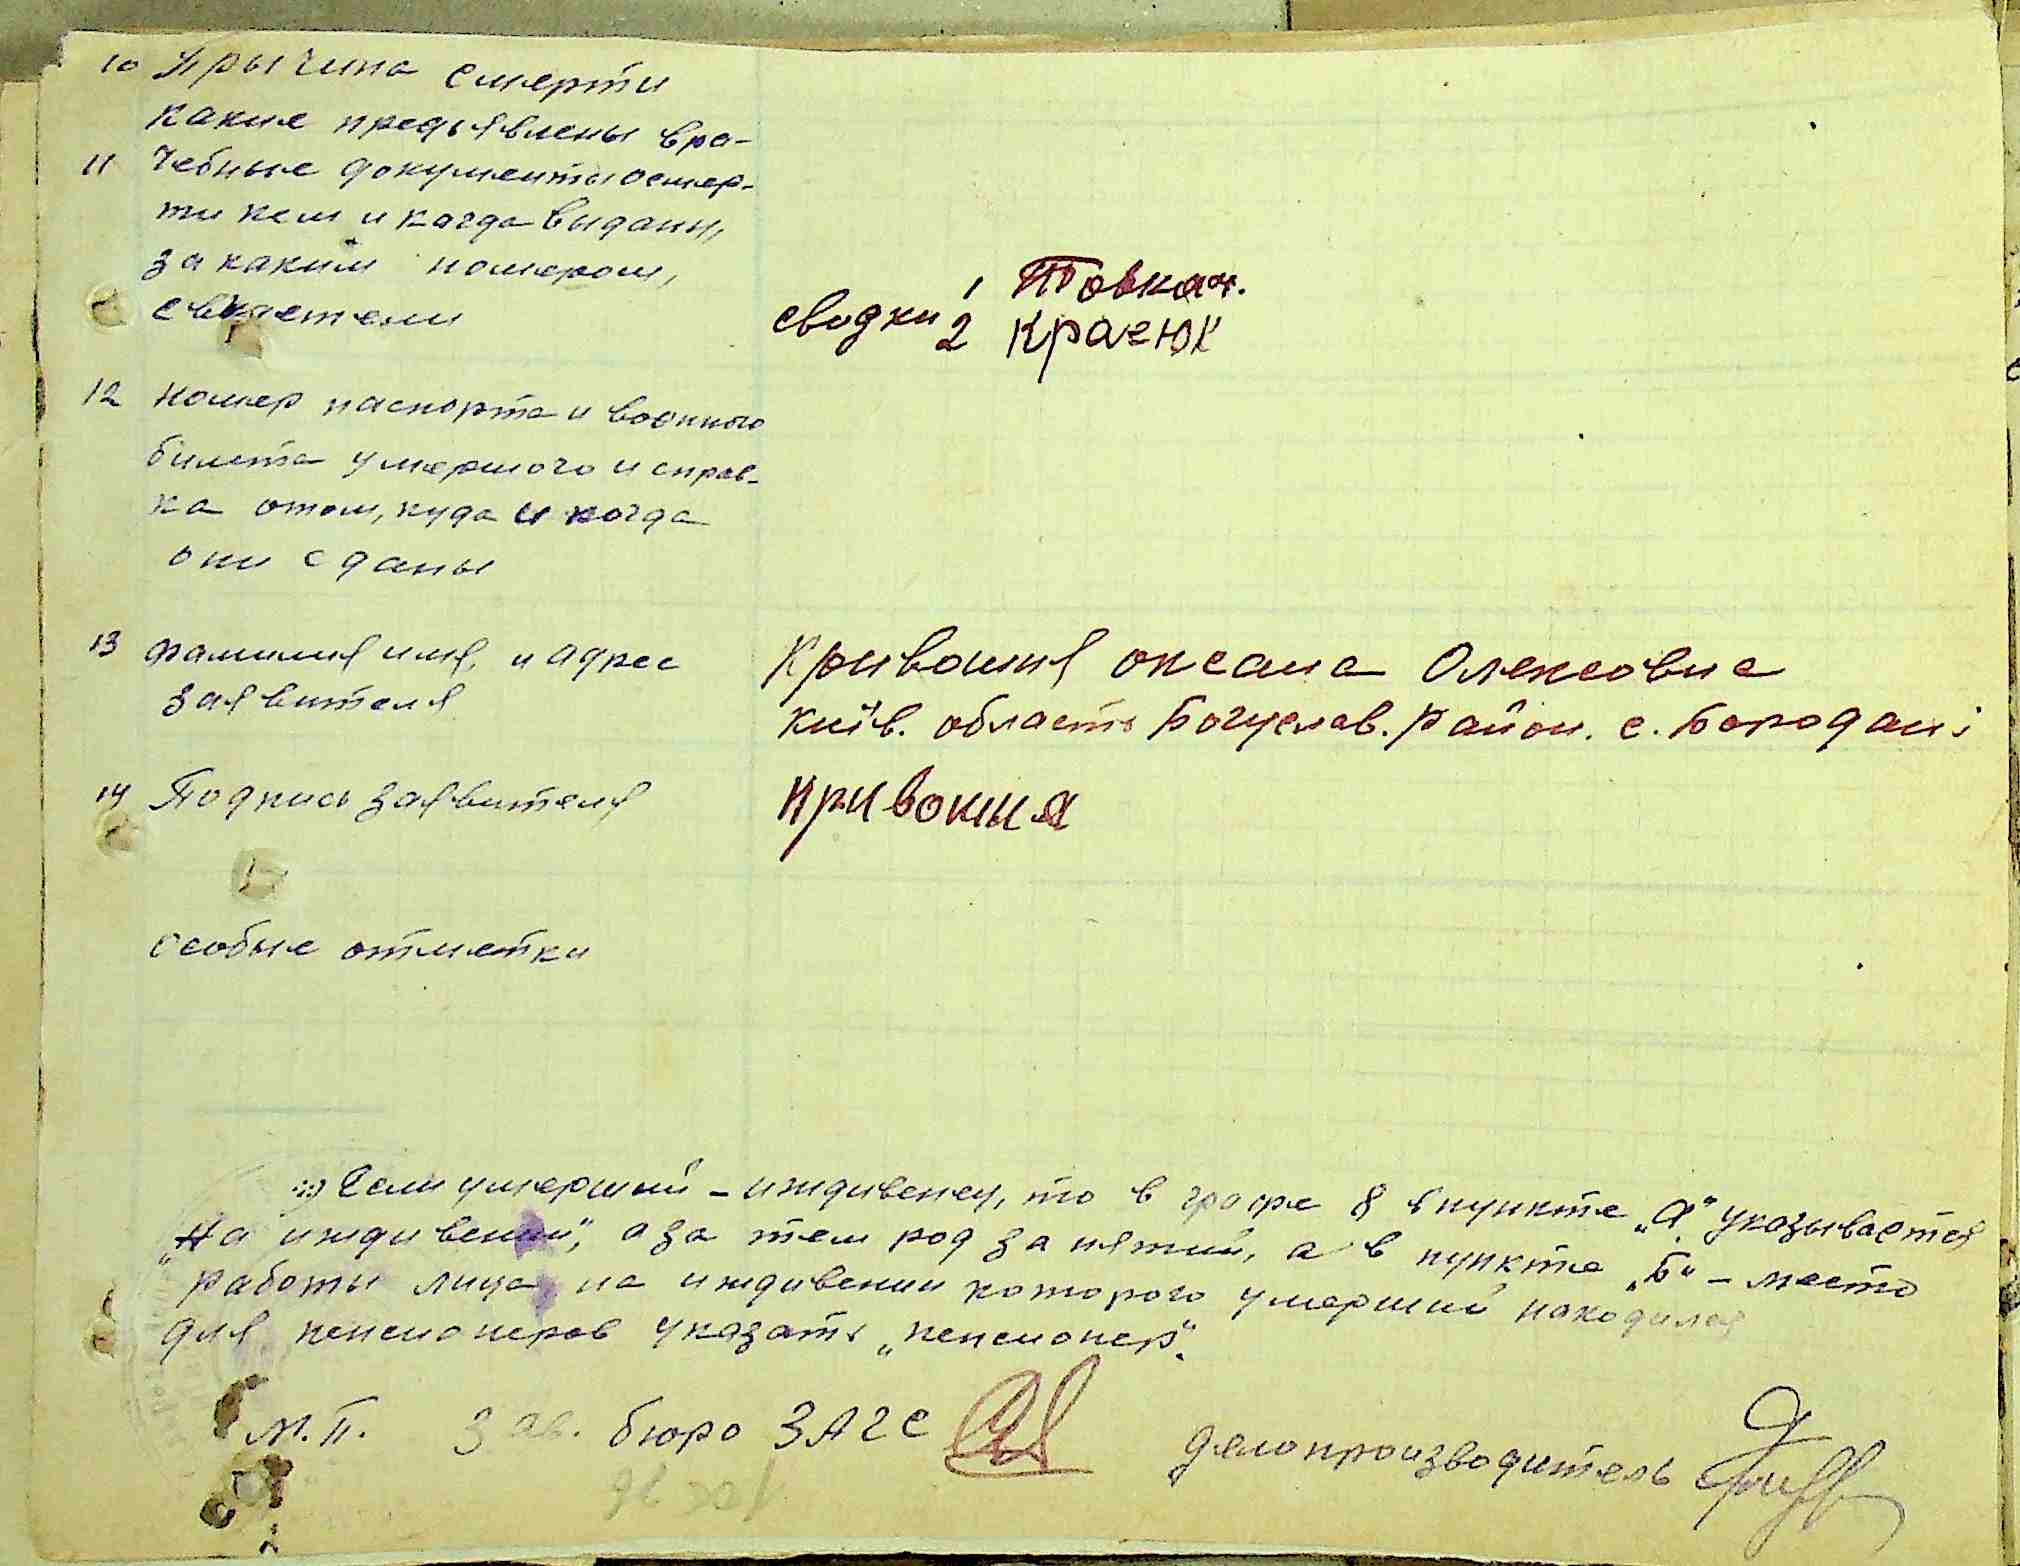 10 Прычина смерти
какие предъявлены вра-
11 чебные документы о смер-
ти кем и когда выданы,
за каким номером,
1 Товкач.
сводки 2 Крагюк
12 номер паспорта и военного
билета умершого и справ-
ка о том, куда и когда
они сданы
13 фамилия имя, и адрес
заявителя
Кривошия оксана Олексовна
Київ. область Богуслав. район. с. Бородані
14 Подпись заявителя
Кривошия
Особые отметки
Если умерший - иждивенец, то в графе 8 в пункте „А" указывается
„На иждивении", а за тем род занятий, а в пункте „Б" - место
работы лица на иждивении которого умерший находился
для пенсионеров указать „пенсионер".
М.П. Зав. бюро ЗАГС
делопроизводитель